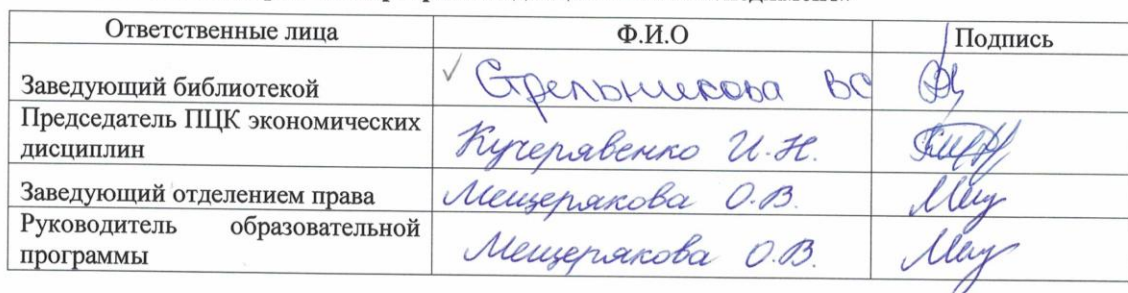 Ответственные лица Ф.И.О Подпись
Заведующий библиотекой Стрельникова ВС
Председатель ПЦК экономических
дисциплин Кучерявенко И.Н.
Заведующий отделением права Мещерякова О.В.
Руководитель образовательной
программы Мещерякова О.В.